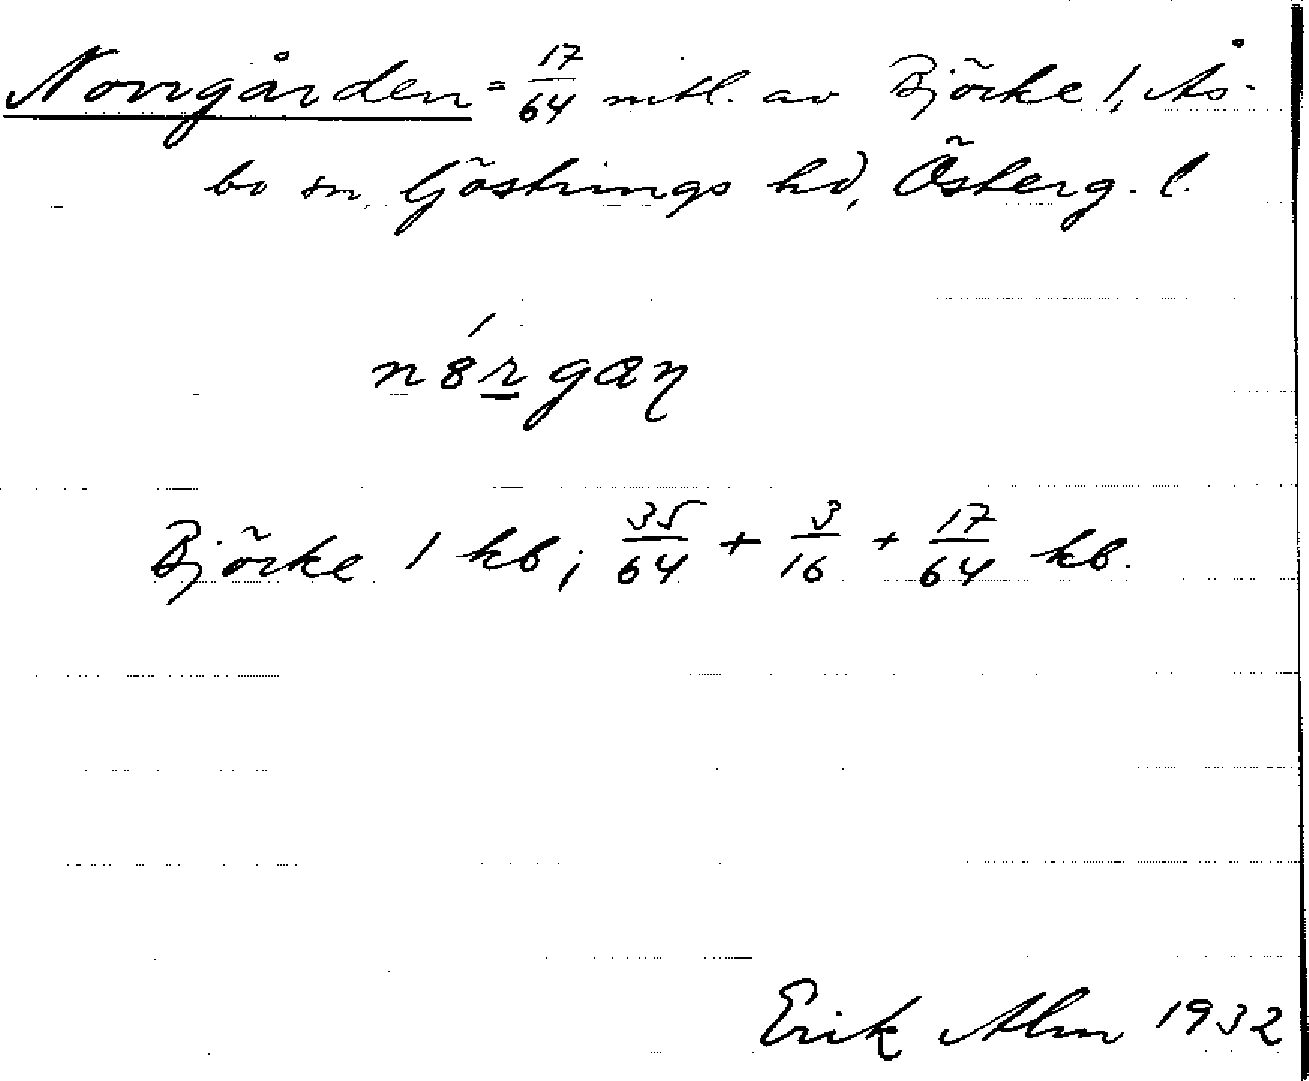 Norrgården = 17/64 mtl. av Björke 1, Ås-
bo sn, Göstrings hd, Österg. l.
n8́r̲gaꞑ
Björke 1 kb; 35/64 + 3/16 + 17/64 kb.
Erik Alm 1932